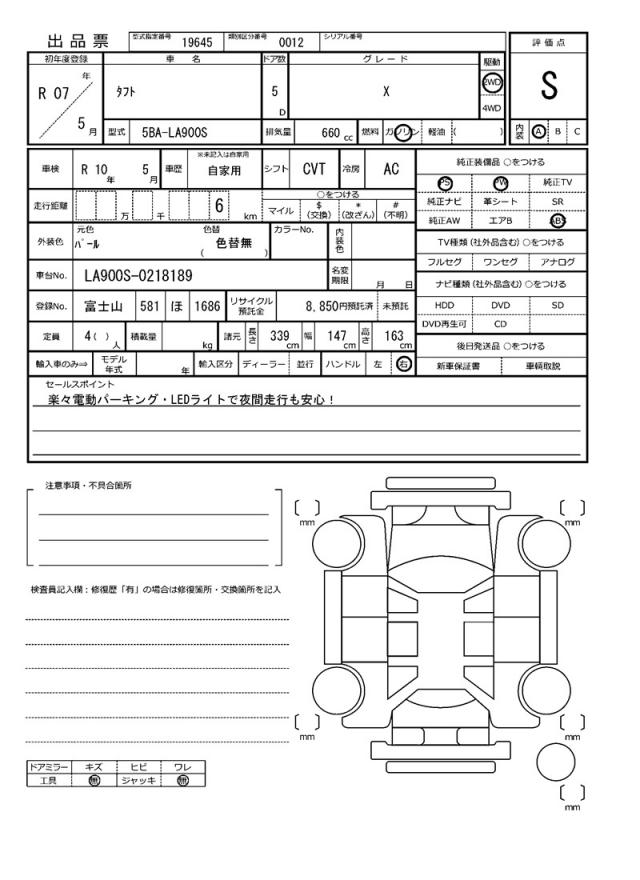 出品票 型式指定番号 19645 類別区分番号 0012 シリアル番号
評価点
初年度登録 車名 ドア数 グレード 駆動
R 07 年 5 月 ﾀﾌﾄ 5 D X 2WD 4WD
S
型式 5BA-LA900S 排気量 660 cc 燃料 ガソリン 軽油 ( )
内装 A B C
車検 R 10 年 5 月 車歴 ※未記入は自家用 自家用 シフト CVT 冷房 AC
純正装備品 ○をつける
PS PW 純正TV
純正ナビ 革シート SR
純正AW エアB ABS
走行距離 万 千 6 km ○をつける
マイル $(交換) *(改ざん) #(不明)
外装色 元色 ﾊﾟｰﾙ 色替 色替無 ( ) カラーNo. 内装色
TV種類 (社外品含む) ○をつける
フルセグ ワンセグ アナログ
車台No. LA900S-0218189 名変期限 月 日
ナビ種類 (社外品含む) ○をつける
HDD DVD SD
DVD再生可 CD
登録No. 富士山 581 ほ 1686 リサイクル預託金 8,850円預託済 未預託
定員 4 ( ) 人 積載量 kg 諸元 長さ 339 cm 幅 147 cm 高さ 163 cm
後日発送品 ○をつける
新車保証書 車輌取説
輸入車のみ⇒ モデル年式 年 輸入区分 ディーラー 並行 ハンドル 左 右
セールスポイント
楽々電動パーキング・LEDライトで夜間走行も安心！
注意事項・不具合箇所
mm
mm
検査員記入欄：修復歴「有」の場合は修復箇所・交換箇所を記入
mm
mm
ドアミラー キズ ヒビ ワレ
工具 無 ジャッキ 無
mm